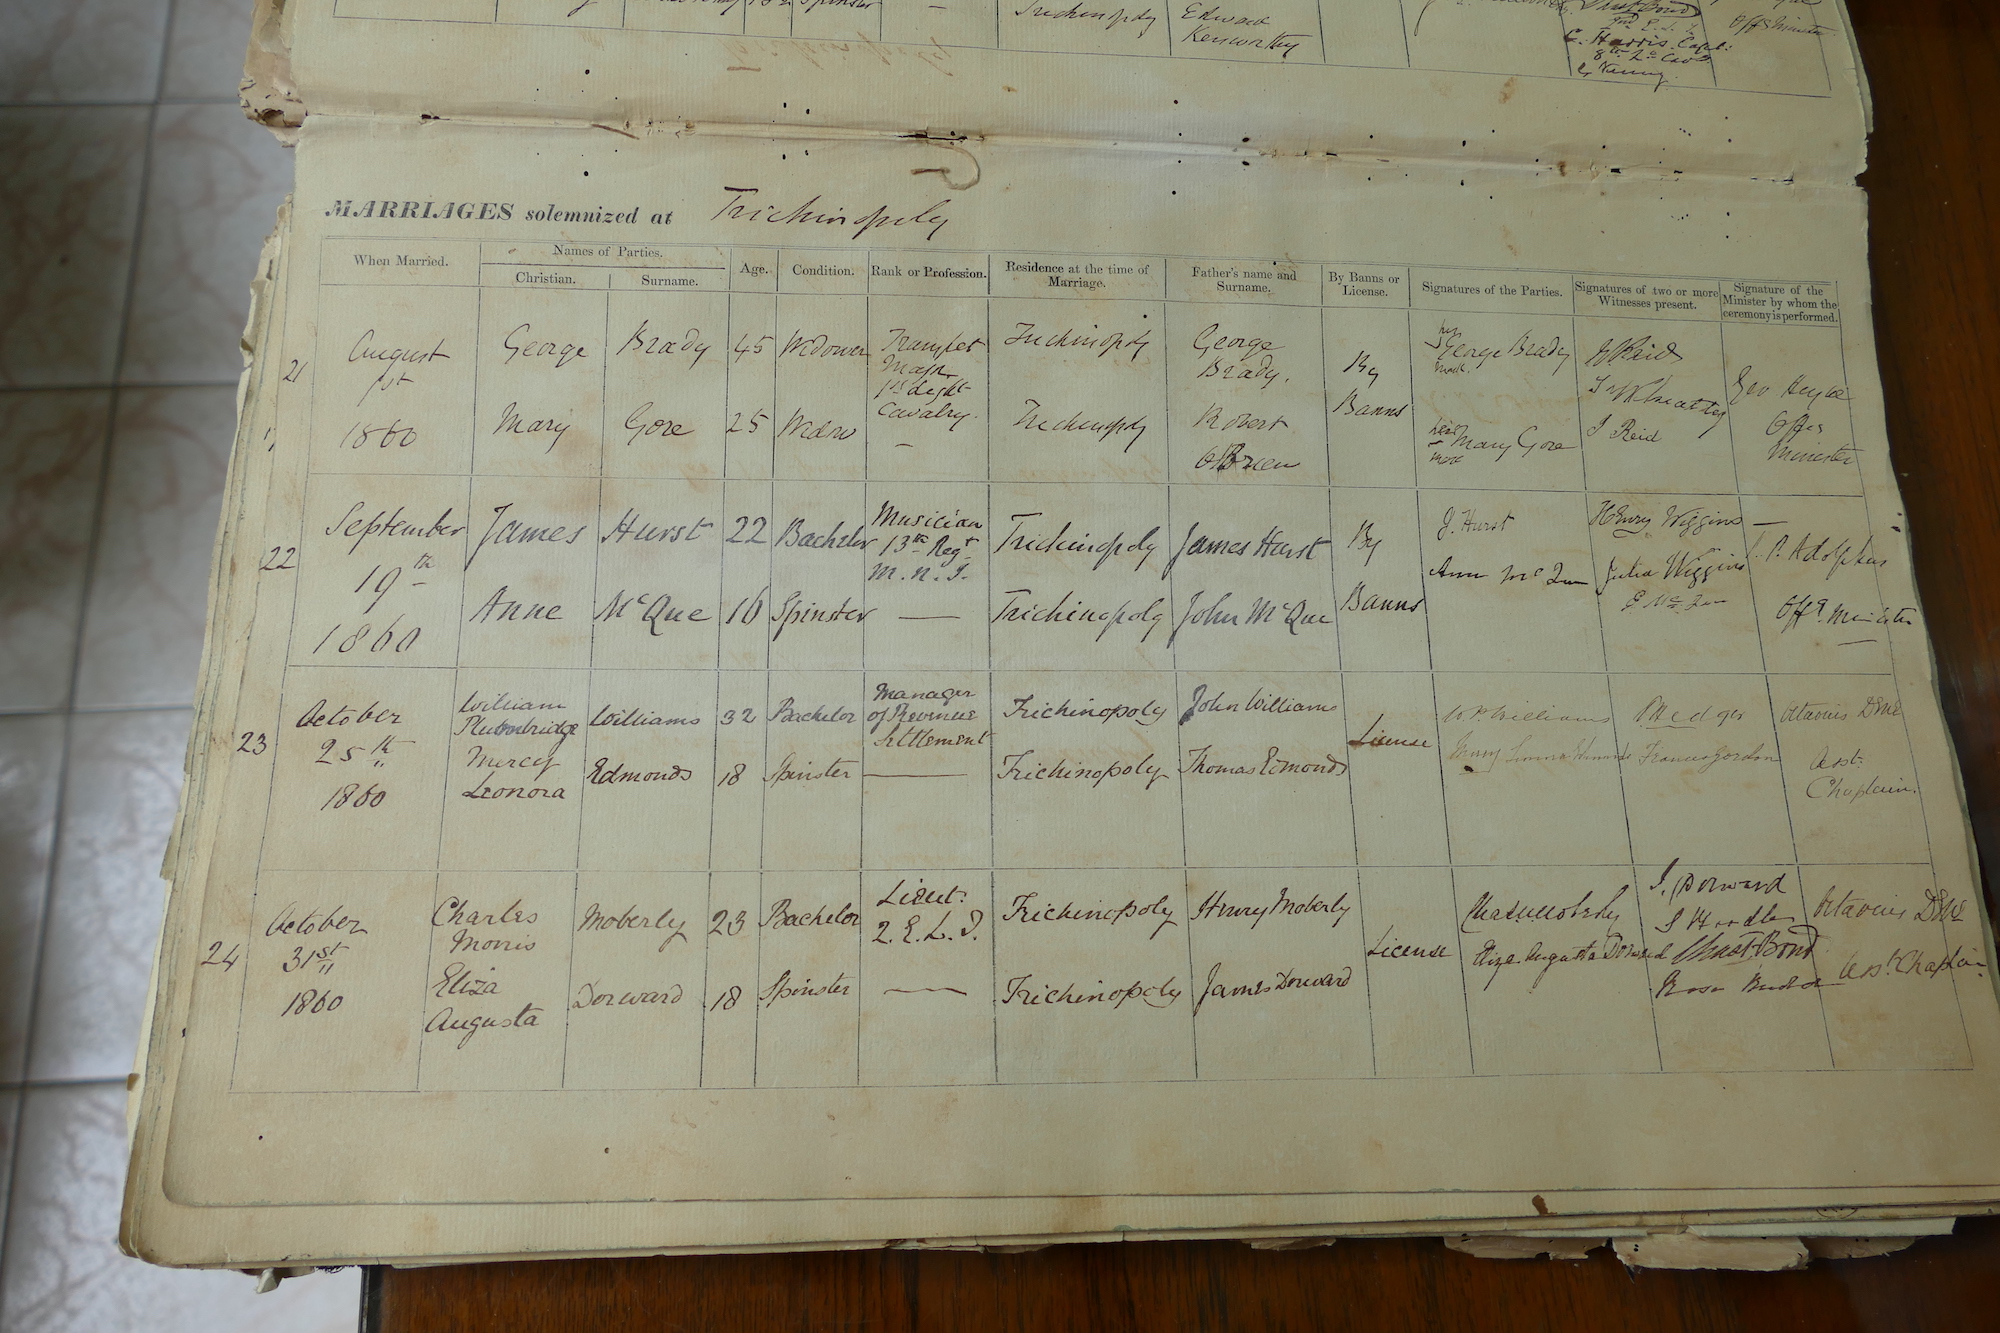 Spinster — Trichinopoly Edward
Kenworthy
C. Harris Capt.
Offg Minister
MARRIAGES solemnized at Trichinopoly
When Married. Names of Parties. Age. Condition. Rank or Profession. Residence at the time of Marriage. Father's name and Surname. By Banns or License. Signatures of the Parties. Signatures of two or more Witnesses present. Signature of the Minister by whom the ceremony is performed.
Christian. Surname.
21 August 1st 1860
George Brady 45 Widower Trumpet Major 1st Light Cavalry. Trichinopoly George Brady. By Banns
his George Brady mark.
Mary Gore 25 Widow — Trichinopoly Robert OBrien
her Mary Gore mark
J Reid
Offg Minister
22 September 19th 1860
James Hurst 22 Bachelor Musician 13th Regt M.N.I. Trichinopoly James Hurst By Banns
J. Hurst Henry Wiggins —
Anne McQue 16 Spinster — Trichinopoly John McQue
Ann McQue Julia Wiggins
P. Adolphus
Offg Minister
23 October 25th 1860
William Plumbridge Williams 32 Bachelor Manager of Revenue Settlement Trichinopoly John Williams License
W.P. Williams
Mercy Leonora Edmonds 18 Spinster — Trichinopoly Thomas Edmonds
Frances Gordon
Octavius Dene
Asst. Chaplain.
24 October 31st 1860
Charles Morris Moberly 23 Bachelor Lieut. 2. E. L. I. Trichinopoly Henry Moberly License
Eliza Augusta Dorward 18 Spinster — Trichinopoly James Dorward
Eliza Augusta Dorward
J. Dorward
Chas Bond
Octavius Dene
Asst. Chaplain